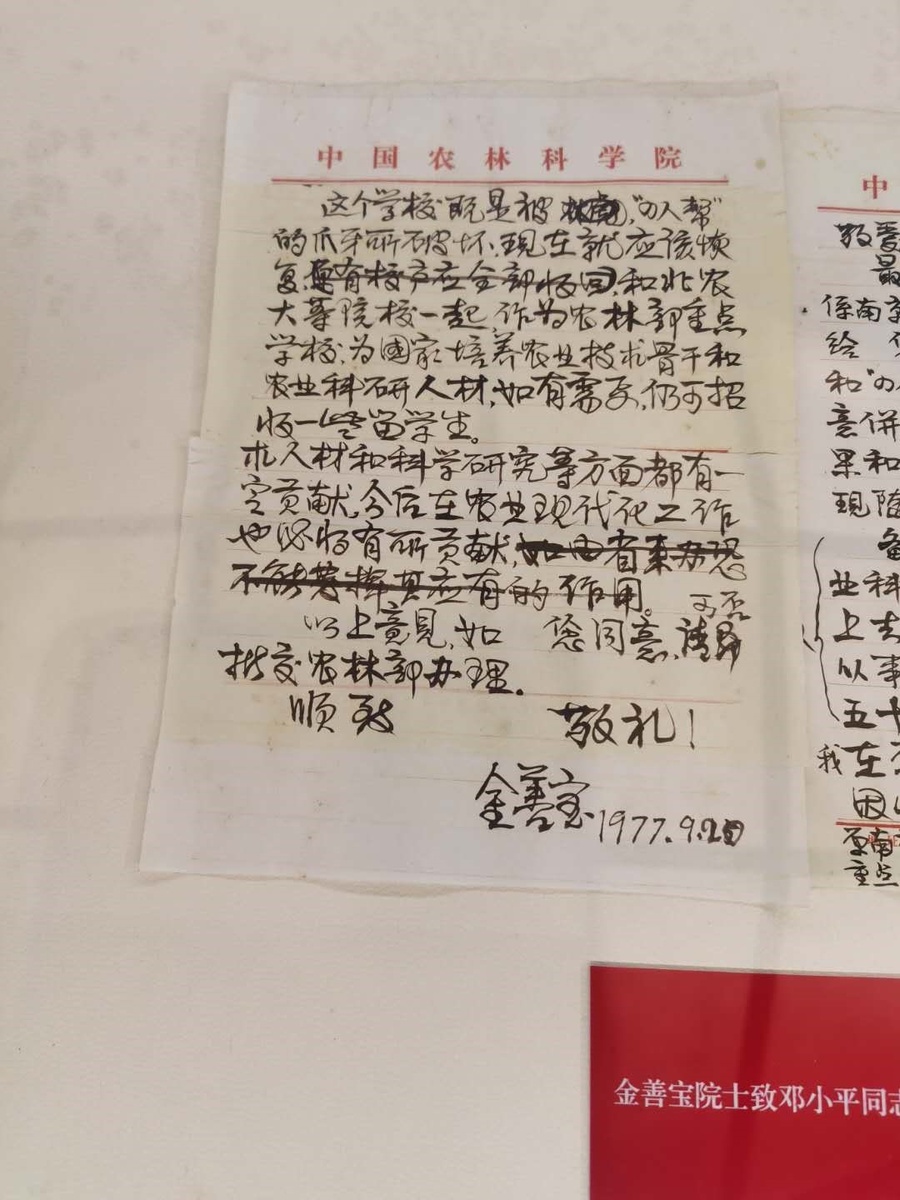 中国农林科学院
这个学校既是被"四人帮"
的爪牙所破坏,现在就应该恢
复,原有校产应全部收回,和北农
大等院校一起,作为农林部重点
学校,为国家培养农业技术骨干和
农业科研人材,如有需要,仍可招
收一些留学生。
术人材和科学研究等方面都有一
定贡献,今后在农业现代化工作
也必将有所贡献,如由省来办恐
不能发挥其应有的作用。
可否
以上意见,如 您同意,请
批交农林部办理。
顺致 敬礼!
金善宝 1977.9.20
中
敬爱
最
係南京
给
和"四人
意併
果和
现随
业科
上去
以事
五十
我在
因
原南
重点
金善宝院士致邓小平同志